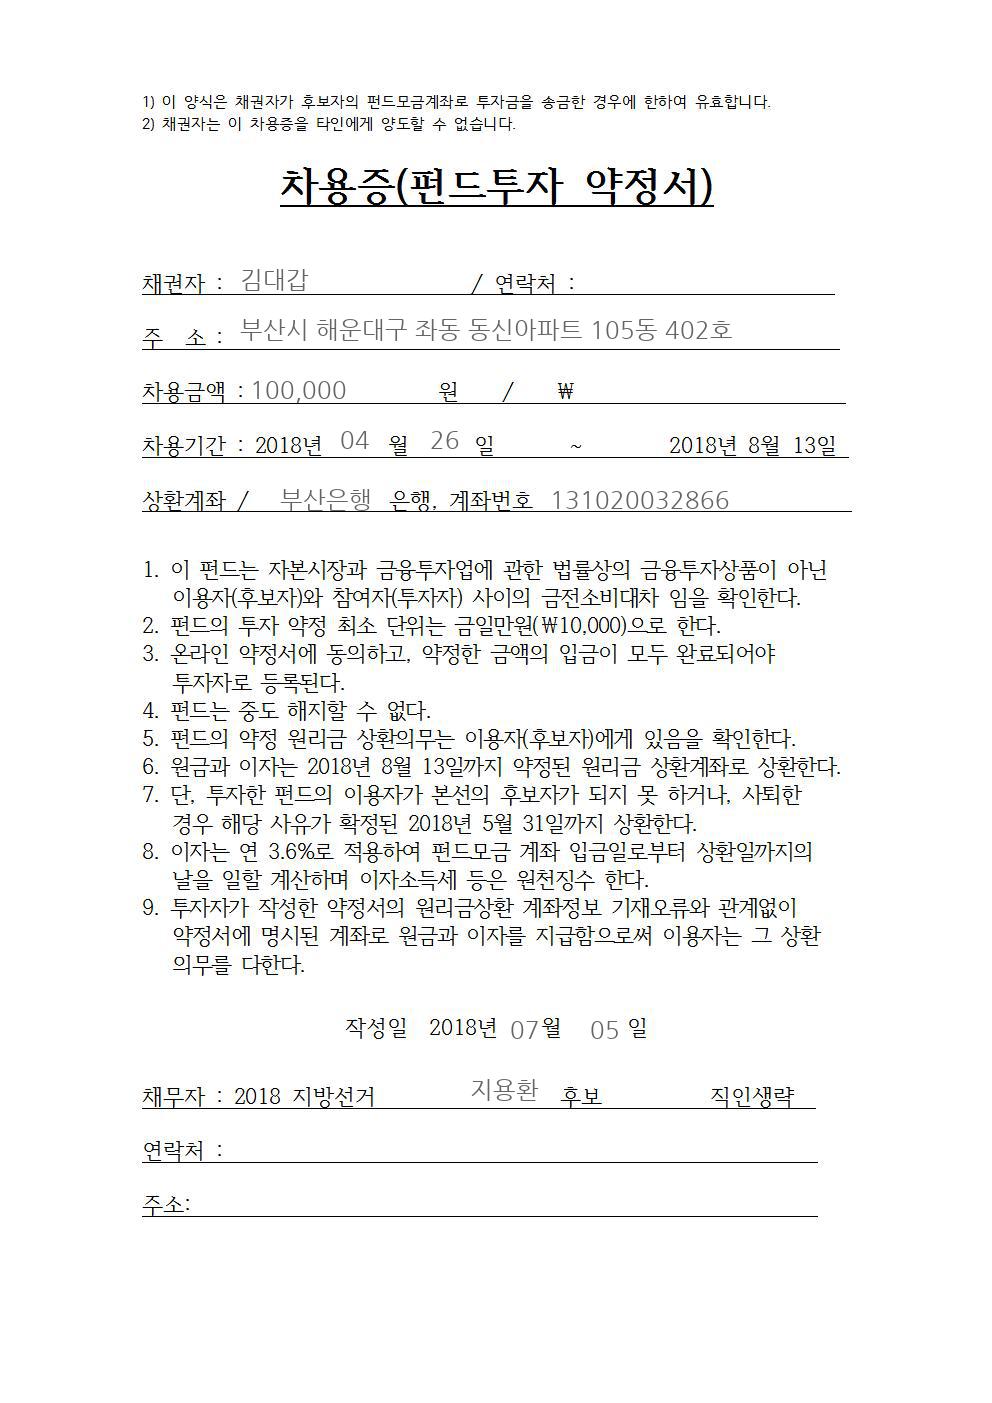 1) 이 양식은 채권자가 후보자의 펀드모금계좌로 투자금을 송금한 경우에 한하여 유효합니다.
2) 채권자는 이 차용증을 타인에게 양도할 수 없습니다.
차용증(펀드투자 약정서)
채권자 : 김대갑 / 연락처 :
주 소 : 부산시 해운대구 좌동 동신아파트 105동 402호
차용금액 : 100,000 원 / ₩
차용기간 : 2018년 04 월 26 일 ~ 2018년 8월 13일
상환계좌 / 부산은행 은행, 계좌번호 131020032866
1. 이 펀드는 자본시장과 금융투자업에 관한 법률상의 금융투자상품이 아닌
이용자(후보자)와 참여자(투자자) 사이의 금전소비대차 임을 확인한다.
2. 펀드의 투자 약정 최소 단위는 금일만원(₩10,000)으로 한다.
3. 온라인 약정서에 동의하고, 약정한 금액의 입금이 모두 완료되어야
투자자로 등록된다.
4. 펀드는 중도 해지할 수 없다.
5. 펀드의 약정 원리금 상환의무는 이용자(후보자)에게 있음을 확인한다.
6. 원금과 이자는 2018년 8월 13일까지 약정된 원리금 상환계좌로 상환한다.
7. 단, 투자한 펀드의 이용자가 본선의 후보자가 되지 못 하거나, 사퇴한
경우 해당 사유가 확정된 2018년 5월 31일까지 상환한다.
8. 이자는 연 3.6%로 적용하여 펀드모금 계좌 입금일로부터 상환일까지의
날을 일할 계산하며 이자소득세 등은 원천징수 한다.
9. 투자자가 작성한 약정서의 원리금상환 계좌정보 기재오류와 관계없이
약정서에 명시된 계좌로 원금과 이자를 지급함으로써 이용자는 그 상환
의무를 다한다.
작성일 2018년 07월 05 일
채무자 : 2018 지방선거 지용환 후보 직인생략
연락처 :
주소: